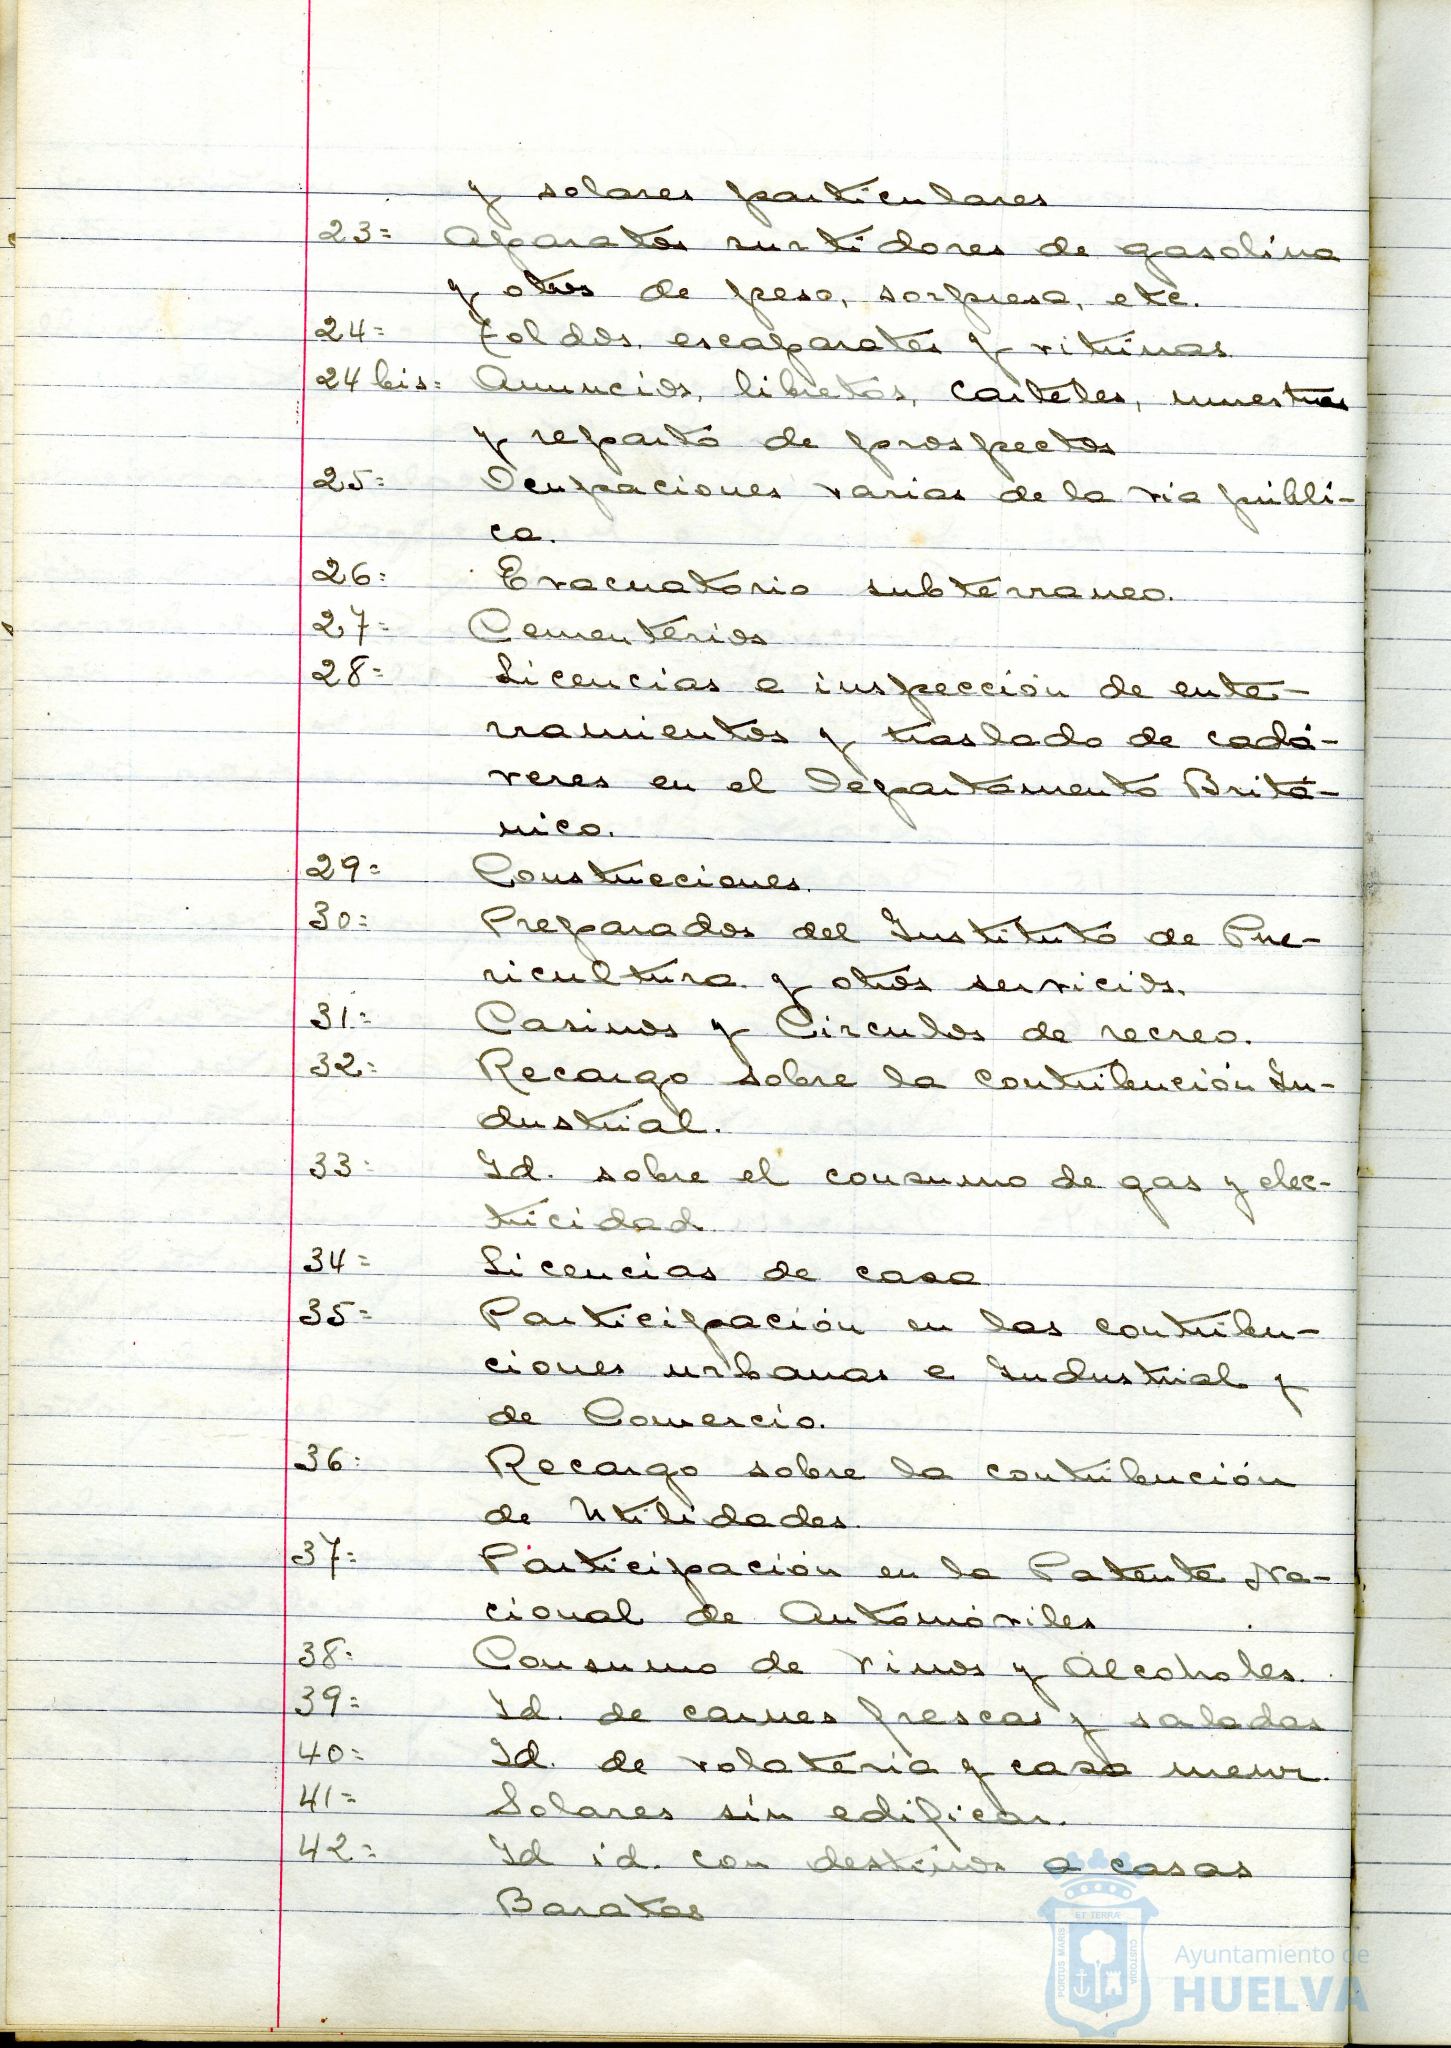 y solares particulares
23= Aparatos surtidores de gasolina
y otros de peso, sorpresa, etc.
24= Toldos, escaparates y vitrinas
24 bis= Anuncios, libretos, carteles, muestras
y reparto de prospectos
25= Ocupaciones varias de la via públi-
ca.
26= Evacuatorio subterraneo.
27= Cementerios
28= Licencias e inspección de ente-
rramientos y traslado de cadá-
veres en el Departamento Britá-
nico.
29= Construcciones.
30= Preparados del Instituto de Pue-
ricultura y otros servicios.
31= Casinos y Circulos de recreo.
32= Recargo sobre la contribución In-
dustrial.
33= Id. sobre el consumo de gas y elec-
tricidad.
34= Licencias de casa
35= Participación en las contribu-
ciones urbanas e Industrial y
de Comercio.
36= Recargo sobre la contribución
de Utilidades.
37= Participación en la Patente Na-
cional de Automóviles
38= Consumo de vinos y Alcoholes.
39= Id. de carnes frescas y saladas
40= Id. de volateria y casa menor.
41= Solares sin edificar.
42= Id id. con destinos a casas
Baratas
PORTUS MARIS ET TERRÆ CUSTODIA
Ayuntamiento de
HUELVA